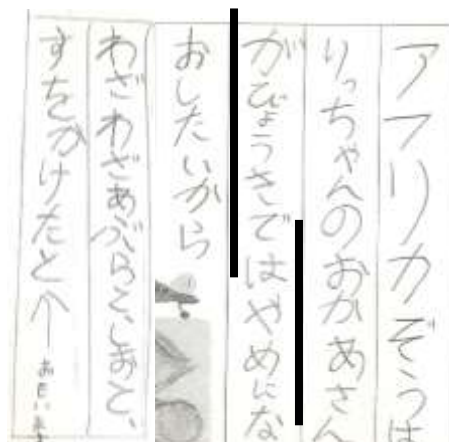 アフリカぞうは
りっちゃんのおかあさん
がびょうきではやめにな
おしたいから
わざわざあぶらと、しおと、
すをかけたと
おもいま